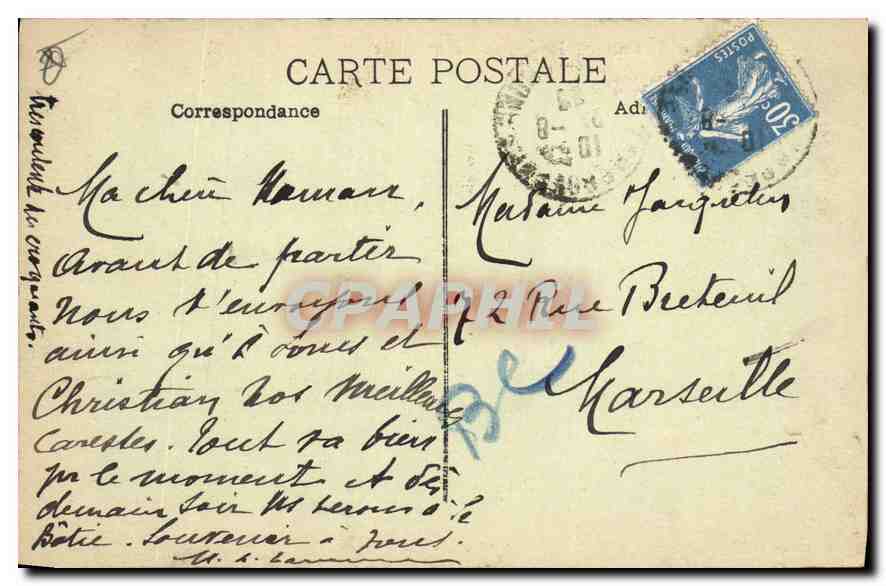 CARTE POSTALE
Correspondance
Ma chère Maman,
avant de partir
nous t'envoyons
ainsi qu'à tous et
Christian nos meilleures
caresses. Tout va bien
pr le moment et dès
demain soir ns serons à
Bâtie. Souvenir à tous.
Madame
72 Rue Breteuil
Marseille
POSTES
30c
CPAPHIL